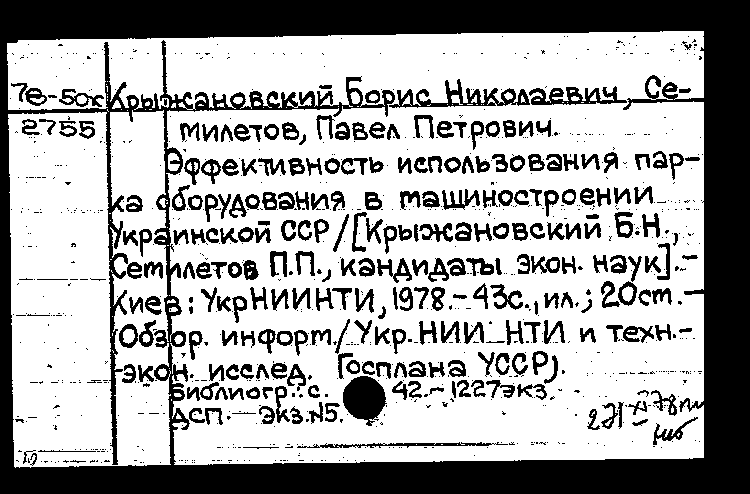 7е-50к Крыжановский, Борис Николаевич, Се-
2755 милетов, Павел Петрович.
Эффективность использования пар-
ка оборудования в машиностроении
Украинской ССР/[Крыжановский Б.Н.,
Семилетов П.П., кандидаты экон. наук].-
Киев: УкрНИИНТИ, 1978.-43с., ил.; 20см.-
(Обзор. информ./Укр.НИИ НТИ и техн.-
экон. исслед. Госплана УССР).
Библиогр.: с. 42.- 1227экз.
ДСП. Экз.№5.